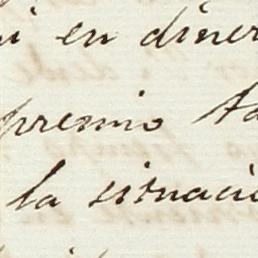 ni en diner
premio ta
la situaci